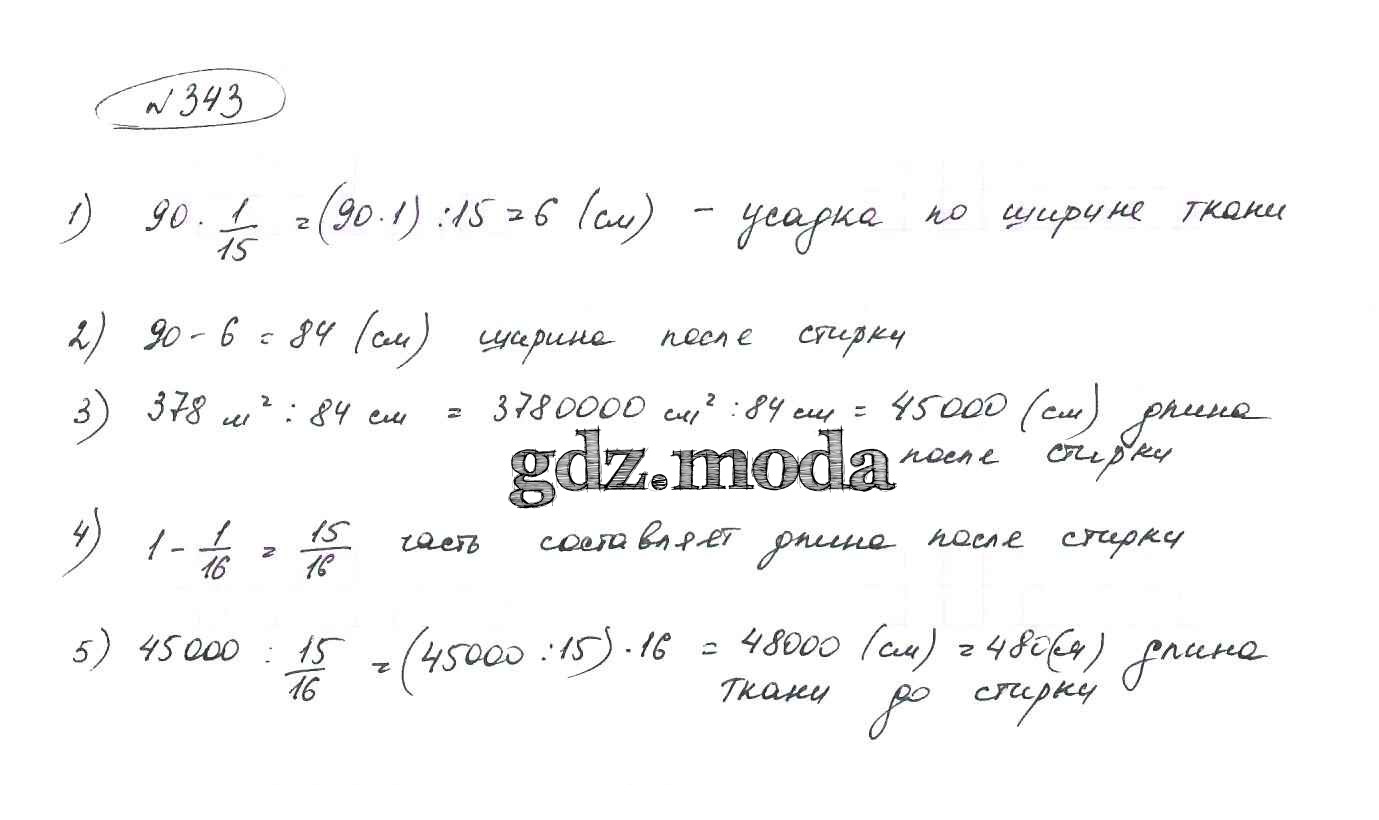 № 343
1) 90 · 1/15 = (90 · 1) : 15 = 6 (см) – усадка по ширине ткани
2) 90 – 6 = 84 (см) ширина после стирки
3) 378 м² : 84 см = 3780000 см² : 84 см = 45000 (см) длина
после стирки
gdz.moda
4) 1 – 1/16 = 15/16 часть составляет длина после стирки
5) 45000 : 15/16 = (45000 : 15) · 16 = 48000 (см) = 480 (м) длина
ткани до стирки